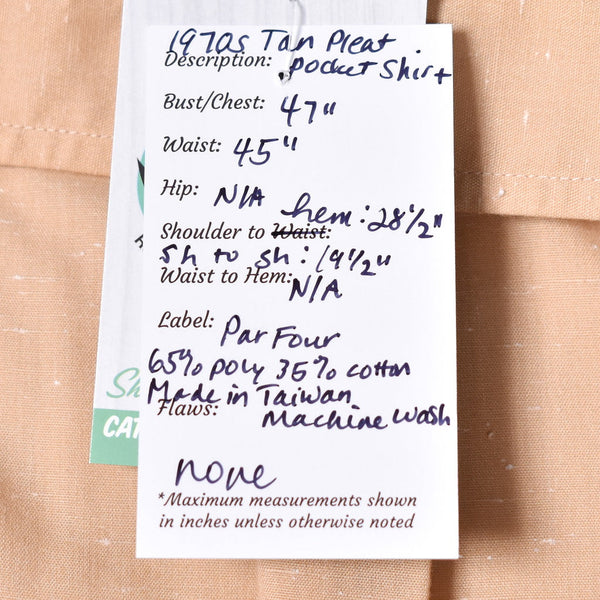 1970s Tan Pleat
Description: pocket shirt
Bust/Chest: 47"
Waist: 45"
Hip: N/A
hem: 28 1/2"
Shoulder to Waist:
sh to sh: 19 1/2"
Waist to Hem: N/A
Label: Par Four
65% poly 35% cotton
Made in Taiwan
Flaws: Machine wash
none
*Maximum measurements shown
in inches unless otherwise noted
Sh
CAT